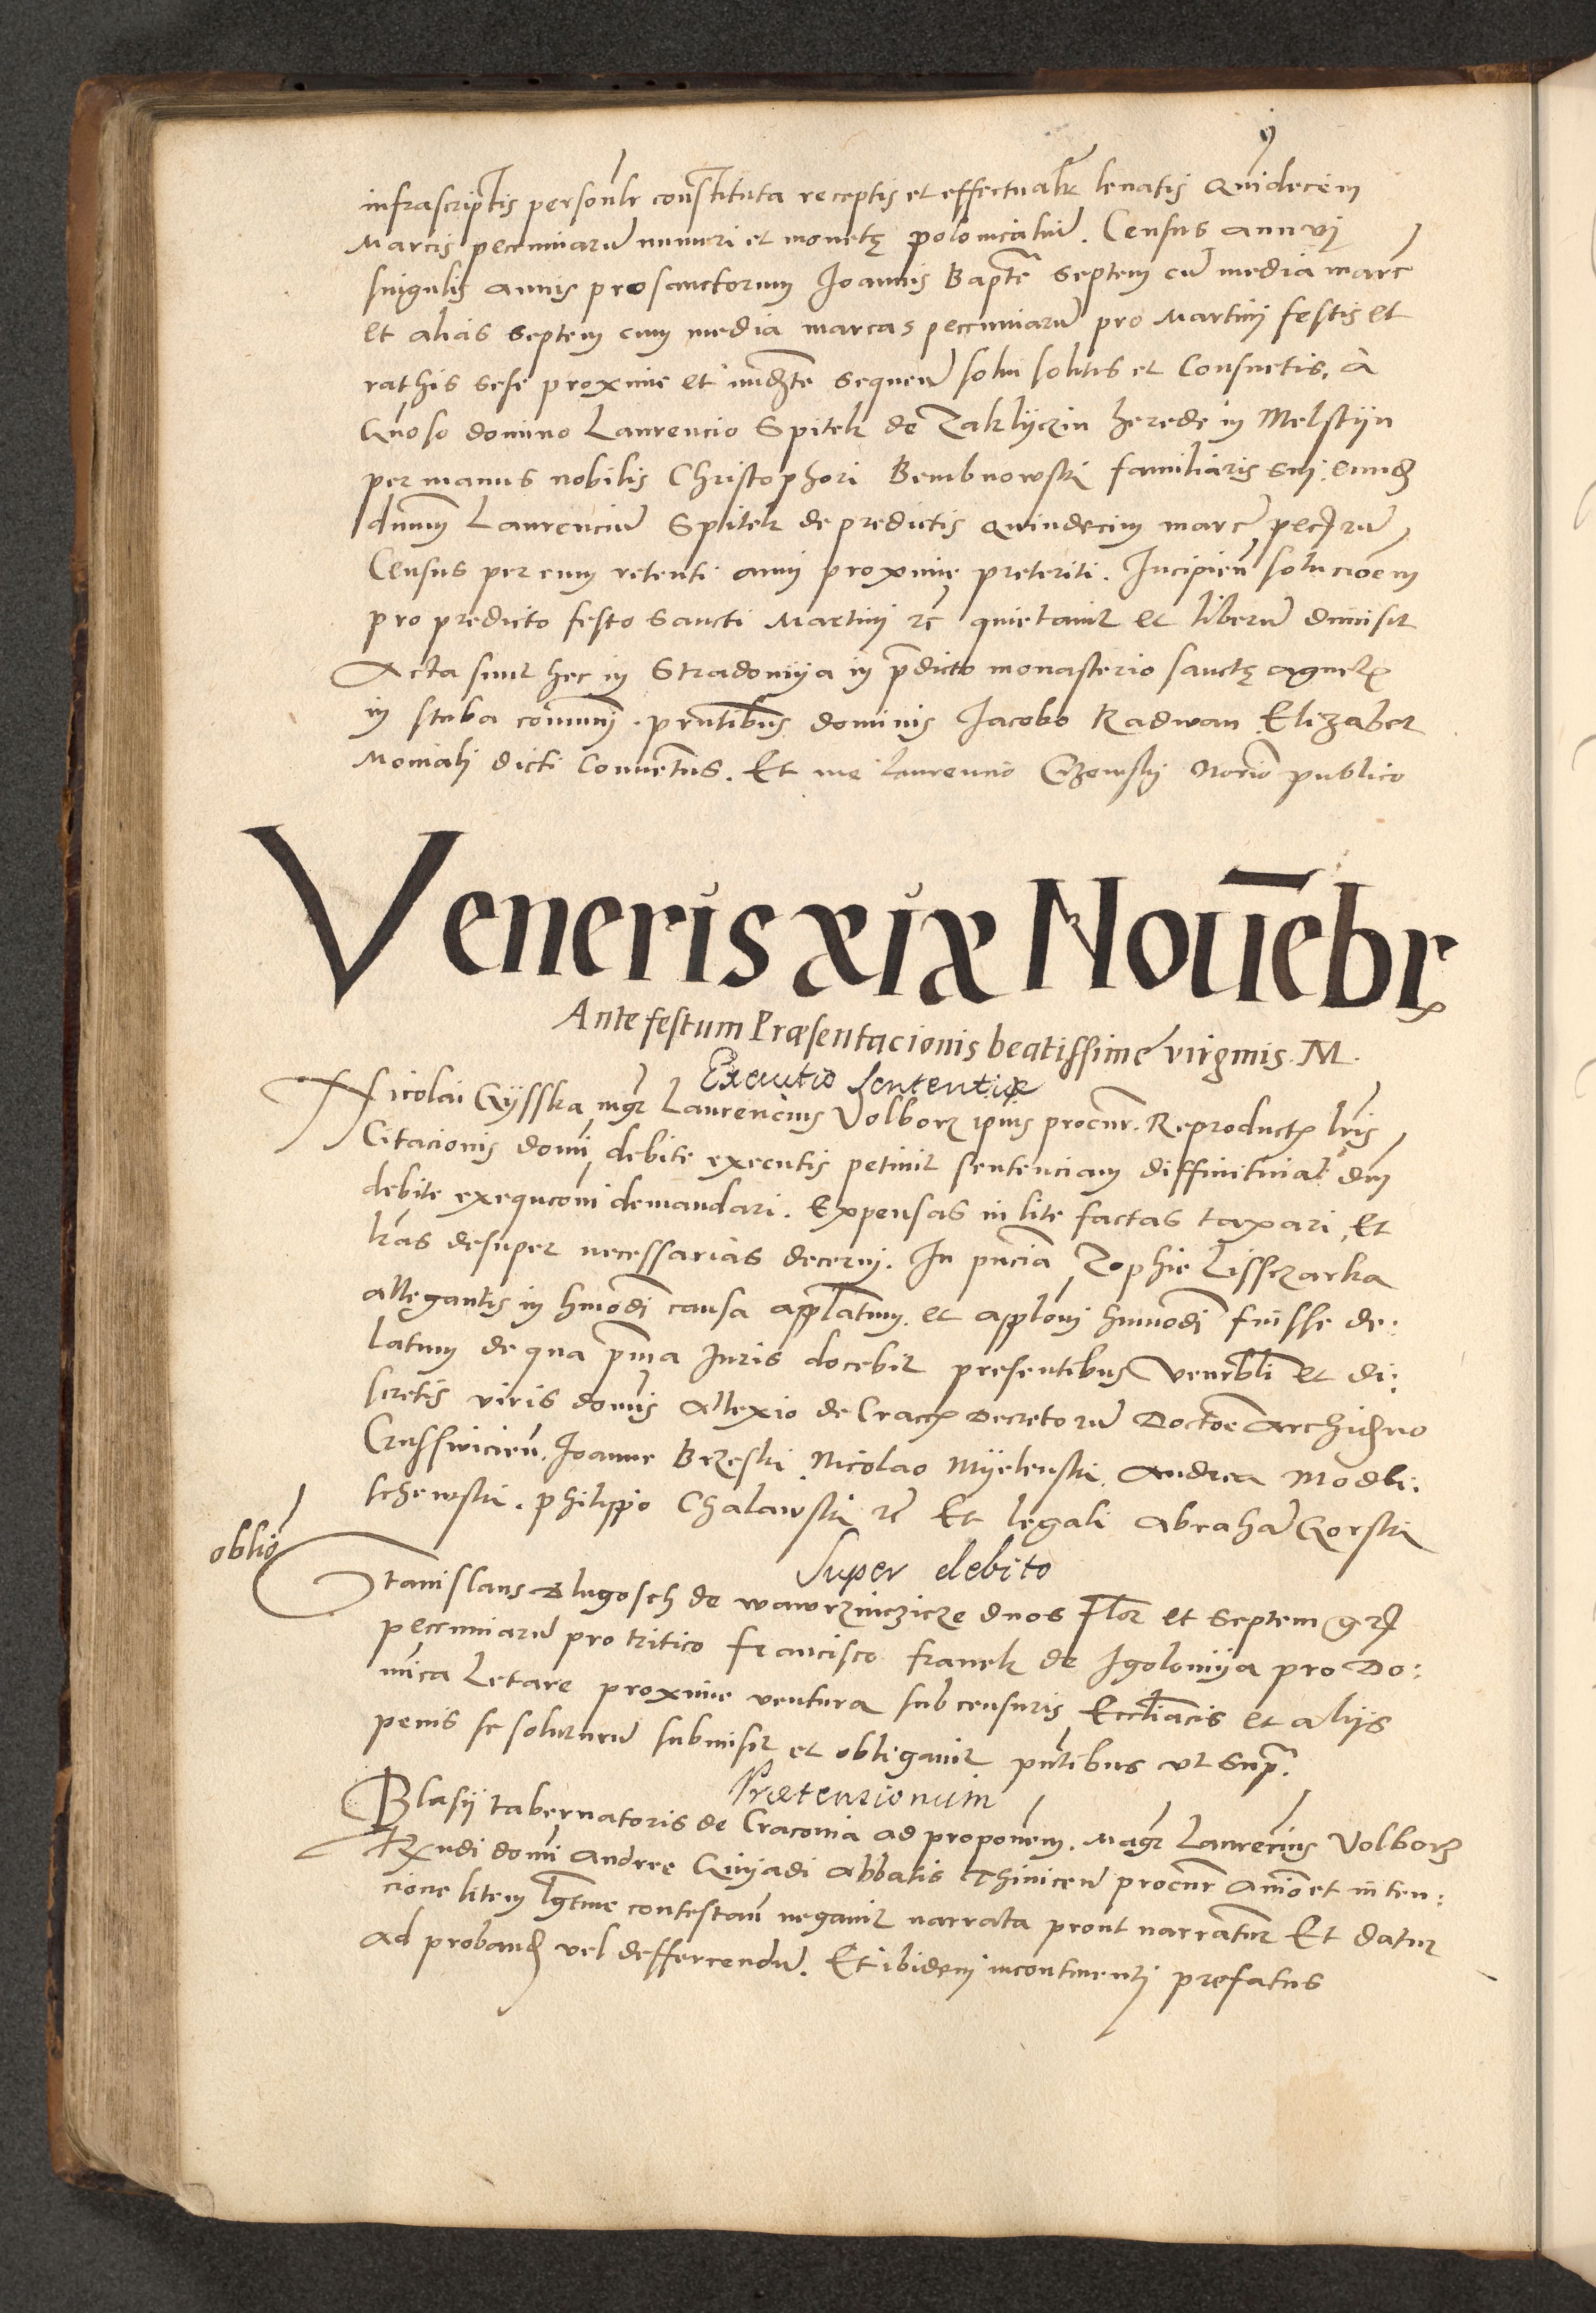 infrascriptis personlr constituta receptis et effectualr leuatis quidecim
Marcis pecuniarū numeri et monetę polonicaliū. Census annui
singulis annis pro sanctorum Joannis Bapte septem cū media marc
et alias septem cum media marcas pecuniarū pro Martini festis et
rathis sese proxime et immete sequeñ solui solitis et Consuetis. A
Gñoso domino Laurencio Spitek de Zaklyczin herede in Melstyn
per manus nobilis Christophori Bembnowski familiaris sui. eundē
dnum Laurenciū Spitek de predictis quindecim marc pecjrū
Census per eum retenti anni proxime preteriti. Incipieñ solucioem
pro predicto festo Sancti Martini zc quietauit et liberū dimisit
Acta sunt hec in Stradomya in pdicto monasterio sanctę agnetę
in stuba communi. prntibus dominis Jacobo Radwan Elizabet
Moniali dicti Conuentus. Et me Laurencio notrio publico
Veneris xix Nouēbr
Ante festum Præsentacionis beatissime virginis. M.
Executio sententiæ
Nicolai Gysska mgr Laurencius Volborz ipius procur. Reproductę lris
Citacionis domi debite executis petiuit sentenciam diffinitiuā dm
debite exequconi demandari. Expensas in lite factas taxari, et
lras desuper necessarias decerni. In pncia Zophie Lissczarka
allegantis in hmodi causa applatum. et apploni hmmodi fuisse de:
latum de qua pma Juris docebit presentibus Venrbli et di:
scretis viris domis Allexio de Crac Decretorū Doctore Archidno
Crusswicieñ. Joanne Brzeski Nicolao Myelenski. Andrea Modli:
schewski. Philippo Chalawski zc Et legali Abrahā Gorski
oblio
Super debito
Stanislaus Dlugosch de wawrzinczicze duos Flor et septem gr
pecuniarū pro tritico Francisco Franek de Igolomya pro Do:
mica Letare proxime ventura sub censuris Ecclīacis et alijs
penis se soluturū submisit et obligauit pntibus vt supr.
Prætensionum
Blasij tabernatoris de Cracouia ad proponem. Magr Laurēcius Volborz
Rxndi domi Andree Gnyadi Abbatis Thiniceñ procur animo et inten:
cione litem lgtme contestañ negauit narrata prout narrantur Et datur
ad proband vel defferendū. Et ibidem incontinenti prefatus